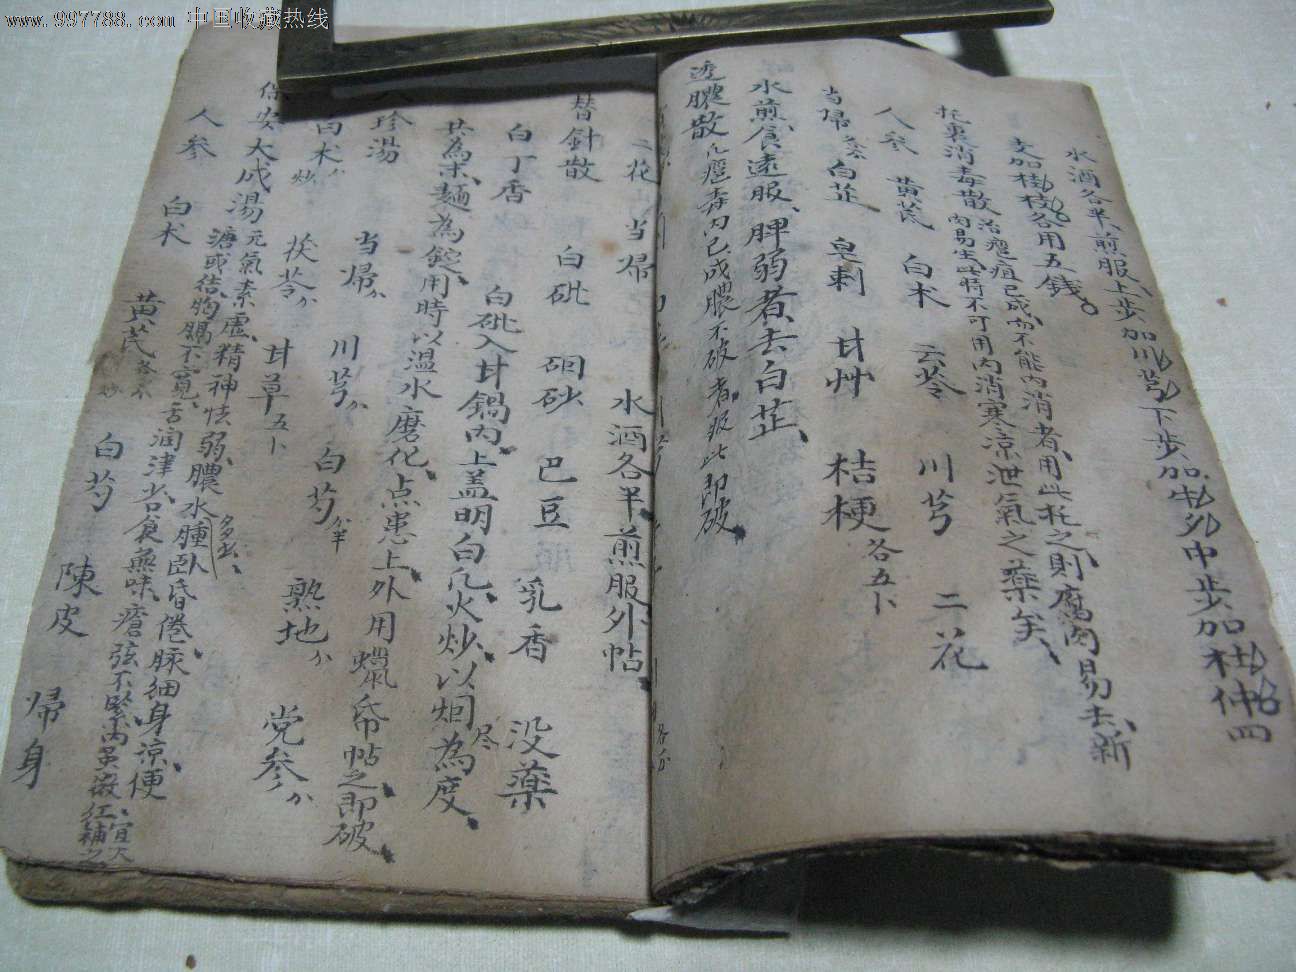 www.997788.com 中国收藏热线
水酒各半煎服上步加川芎下步加牛夕中步加杜仲四
支加桂枝各用五錢
托裏消毒散治癰疽已成不能内消者用此托之則腐肉易去新
肉易生此時不可用内消寒凉泄氣之藥矣
人參 黃芪 白术 云苓 川芎 二花
当歸 白芷 皂刺 甘艸 桔梗各五卜
水煎食遠服脾弱者去白芷
透膿散凡癰毒内已成膿不破者服此即破
二花 当歸 水酒各半煎服外帖
替針散
白丁香 白砒 硇砂 巴豆 乳香 没藥
白砒入甘鍋内上蓋明白凡火炒以烟尽為度
共為末麺為錠用時以温水磨化点患上外用蠟帋帖之即破
珍湯 当歸 川芎 白芍 熟地 党參
白术炒 茯苓 甘草五卜
保安大成湯元氣素虛精神怯弱膿水多出腫臥昏倦脉細身凉便
溏或結胸膈不寬舌潤津少食無味瘡弦不緊肉虽微紅宜大補之
人參 白术 黃芪炒 白芍 陳皮 歸身